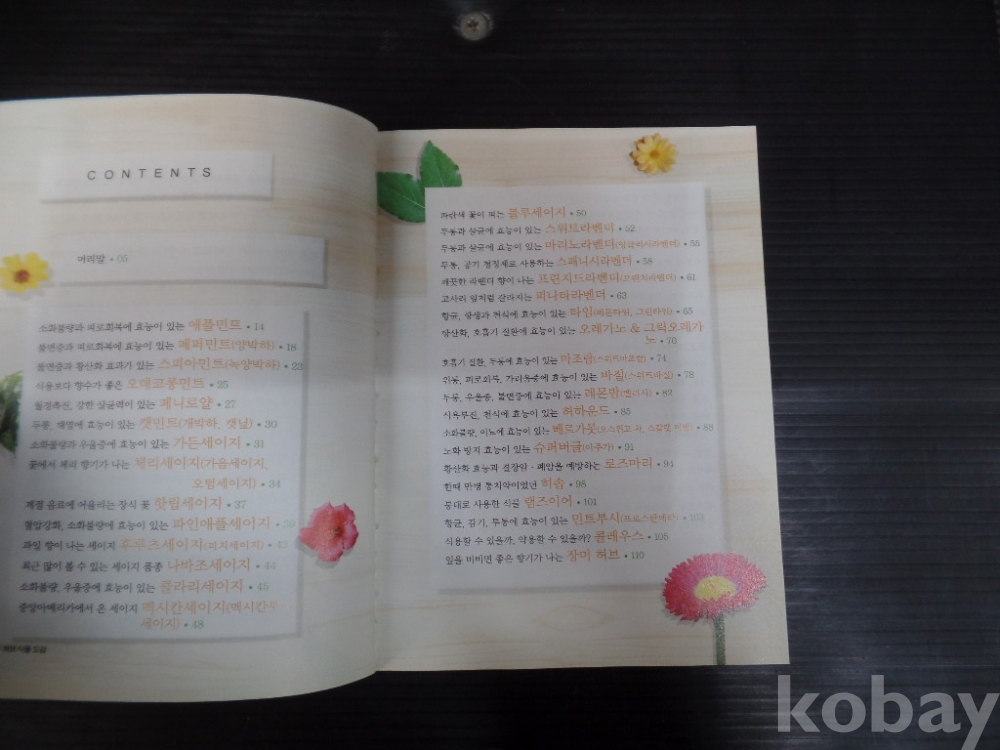 CONTENTS
머리말 • 05
소화불량과 피로회복에 효능이 있는 애플민트 • 14
불면증과 피로회복에 효능이 있는 페퍼민트(양박하) • 18
불면증과 황산화 효과가 있는 스피아민트(녹양박하) • 23
식용보다 향수가 좋은 오데코롱민트 • 25
월경촉진, 강한 살균력이 있는 페니로얄 • 27
두통, 해열에 효능이 있는 캣민트(개박하, 캣닢) • 30
소화불량과 우울증에 효능이 있는 가든세이지 • 31
꽃에서 체리 향기가 나는 체리세이지(가을세이지,
오텀세이지) • 34
계절 음료에 어울리는 장식 꽃 핫립세이지 • 37
혈압강화, 소화불량에 효능이 있는 파인애플세이지 • 39
과일 향이 나는 세이지 후루츠세이지(피치세이지) • 42
최근 많이 볼 수 있는 세이지 품종 나바조세이지 • 44
소화불량, 우울증에 효능이 있는 클라리세이지 • 45
중앙아메리카에서 온 세이지 멕시칸세이지(멕시칸부시
세이지) • 48
허브 식물 도감
파란색 꽃이 피는 블루세이지 • 50
두통과 살균에 효능이 있는 스위트라벤더 • 52
두통과 살균에 효능이 있는 마리노라벤더(잉글리시라벤더) • 55
두통, 공기 청정제로 사용하는 스패니시라벤더 • 58
깨끗한 라벤더 향이 나는 프린지드라벤더(프렌치라벤더) • 61
고사리 잎처럼 갈라지는 피나타라벤더 • 63
항균, 방부와 천식에 효능이 있는 타임(레몬타임, 크립타임) • 65
항산화, 호흡기 질환에 효능이 있는 오레가노 & 그릭오레가
노 • 70
호흡기 질환, 두통에 효능이 있는 마조람(스위트마조람) • 74
위통, 피로회복, 가려움증에 효능이 있는 바질(스위트바질) • 78
두통, 우울증, 불면증에 효능이 있는 레몬밤(멜리사) • 82
식욕부진, 천식에 효능이 있는 허하운드 • 85
소화불량, 이뇨에 효능이 있는 베르가못(오스위고 차, 스칼렛 비밤) • 88
노화 방지 효능이 있는 슈퍼버글(아주가) • 91
황산화 효능과 전립암 · 폐암을 예방하는 로즈마리 • 94
한때 만병 통치약이었던 히솝 • 98
붕대로 사용한 식물 램즈이어 • 101
항균, 감기, 두통에 효능이 있는 민트부시(프로스탄테라) • 103
식용할 수 있을까, 약용할 수 있을까? 콜레우스 • 105
잎을 비비면 좋은 향기가 나는 장미 허브 • 110
kobay